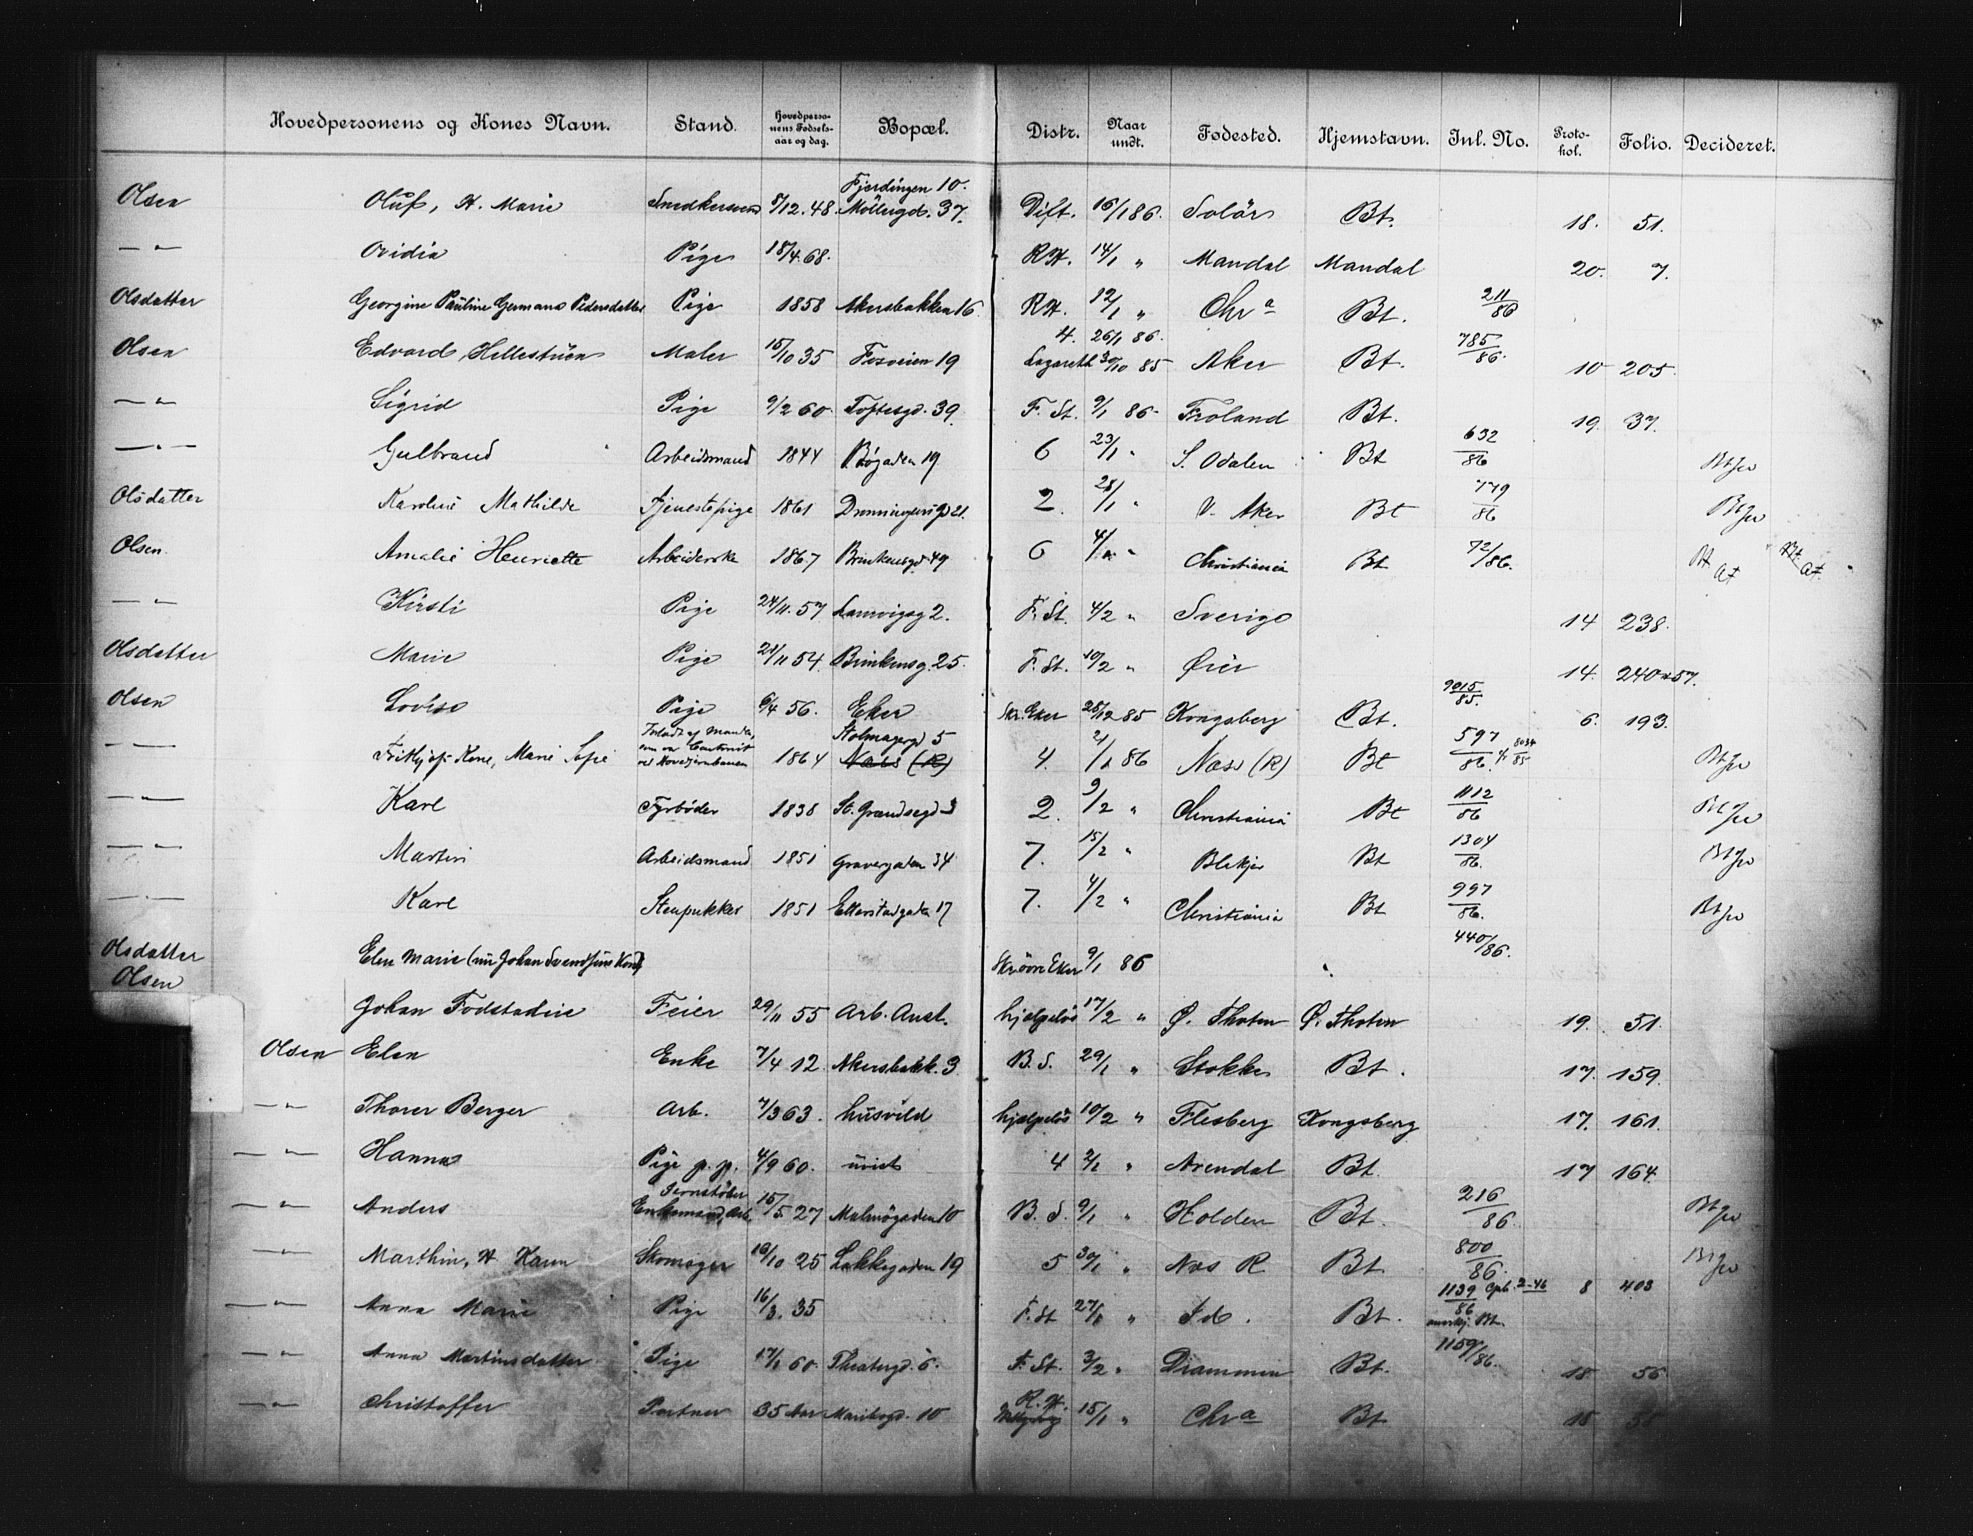 Hovedpersonens og Kones Navn. Stand. Hovedpersonens Fødselsaar og dag. Bopæl. Distr. Naar undt. Fødested. Hjemstavn. Inl. No. Protokol. Folio. Decideret.
Fjerdingen 10.
Olsen Oluf, H. Marie Snedkersvend 5/12. 48. Møllergd. 37. Dift. 16/1 86. Solør Bt. 18. 51.
— " — Ovidia Pige 18/4. 68. RH. 14/1 " Mandal Mandal 20. 7.
Olsdatter Georgine Pauline Germana Pedersdatter Pige 1858 Akersbakken 16. RH. 12/1 " Chra Bt. 211/86
4. 26/1 86.
Olsen Edvard Hellestuen Maler 15/10 35 Fosveien 19 Lazareth 30/10 85 Aker Bt. 785/86. 10 205.
— " — Sigrid Pige 9/2 60. Toftesgd. 39. F. St. 9/1 86. Froland Bt. 19. 37.
— " — Gulbrand Arbeidsmand 1844 Bøgaden 19 6 23/1 " S. Odalen Bt 632/86
Olsdatter Karoline Mathilde Tjenestepige 1861 2. 28/1 " V. Aker Bt 779/86
Olsen. Amalie Henriette Arbeiderske 1867 Brinkensgd. 49 6 Christiania Bt 72/86.
— " — Kirsti Pige 24/11. 57 Larvigsg 2. F. St. 4/2 " Sverige 14 238.
Olsdatter Marie Pige 21/11 54. Brinkensg. 25. F. St. 10/2 " Øier 14. 240 57.
Olsen Lovise Pige 6/4 56. Eker Skr. Eker 28/12 85 Kongsberg Bt. 9015/85. 6. 193.
Stolmagergd 5
— " — Frithjofs Kone, Marie Sofie 1864 Næs (R) 4. 86 Næs (R) Bt 597/86. 8034/85
— " — Karl Fyrbøder 1838 St. Grændsegd 3 2. 9/2 " Christiania Bt 1112/86
— " — Martin Arbeidsmand 1851 Gravergaden 34 7. 15/2 " Blekjer Bt 1304/86.
— " — Karl Stenpukker 1851 Etterstadgaden 17 7. 4/2 " Christiania Bt 997/86.
Olsdatter Elen Marie (nu Johan Svendsens Kone) Skr. øvre Eker 9/1 86 440/86.
Olsen
Johan Fodstadeie Feier 29/11 55 Arb. Anst. hjælpeløs 17/2 " Ø. Thoten Ø. Thoten 19. 51.
Olsen Elen Enke 7/4 12. Akersbakk. 3. B. S. 29/1 " Stokke Bt. 17. 159.
— " — Thorer Berger Arb. 7/3 63. husvild hjælpeløs 10/2 " Flesberg Kongsberg 17. 161.
— " — Hanna Pige p. p. 4/9 60. uvist 4 2/1 " Arendal Bt. 17 164.
Jernstøber
— " — Anders Enkemand, Arb. 15/5. 27 Malmøgaden 10 B. S. 9/1 " Holden Bt. 216/86
— " — Marthin, H. Karen Skomager 19/10 25 Lakkegaden 19 5 30/1 " Næs R Bt. 800/86.
— " — Anna Marie Pige 16/3. 35 F. St 27/1 " Id. Bt. 1139/86 2-46 8 403
anerkj. Bt.
— " — Anna Martinsdatter Pige 17/1 60. Theatergd. 6. F. St. 3/2 " Drammen Bt. 1159/86. 18 56
R. H.
— " — Christoffer Portner 35 Aar Maribogd. 10 15/1 " Chra Bt 18